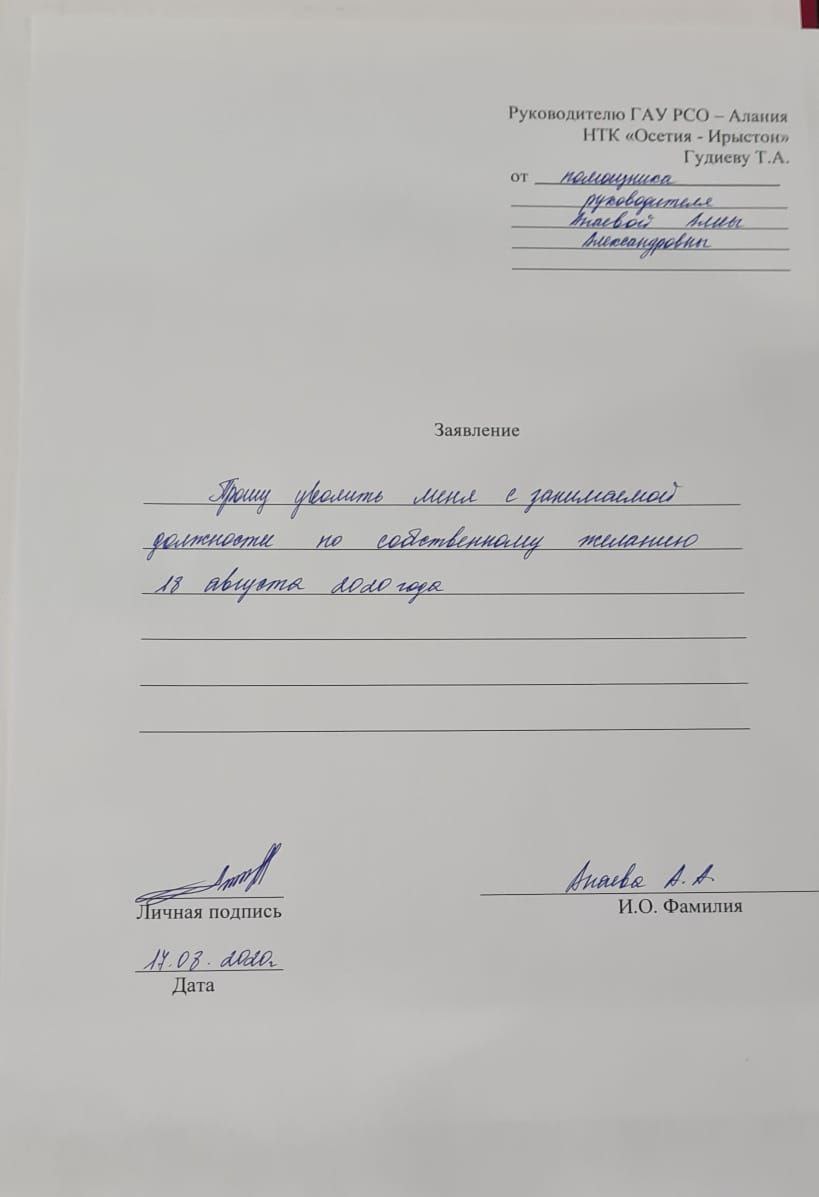 Руководителю ГАУ РСО – Алания
НТК «Осетия - Ирыстон»
Гудиеву Т.А.
от помощника
руководителя
Апаевой Алины
Александровны
Заявление
Прошу уволить меня с занимаемой
должности по собственному желанию
18 августа 2020 года
Апаева А. А.
Личная подпись
И.О. Фамилия
17.08.2020г
Дата